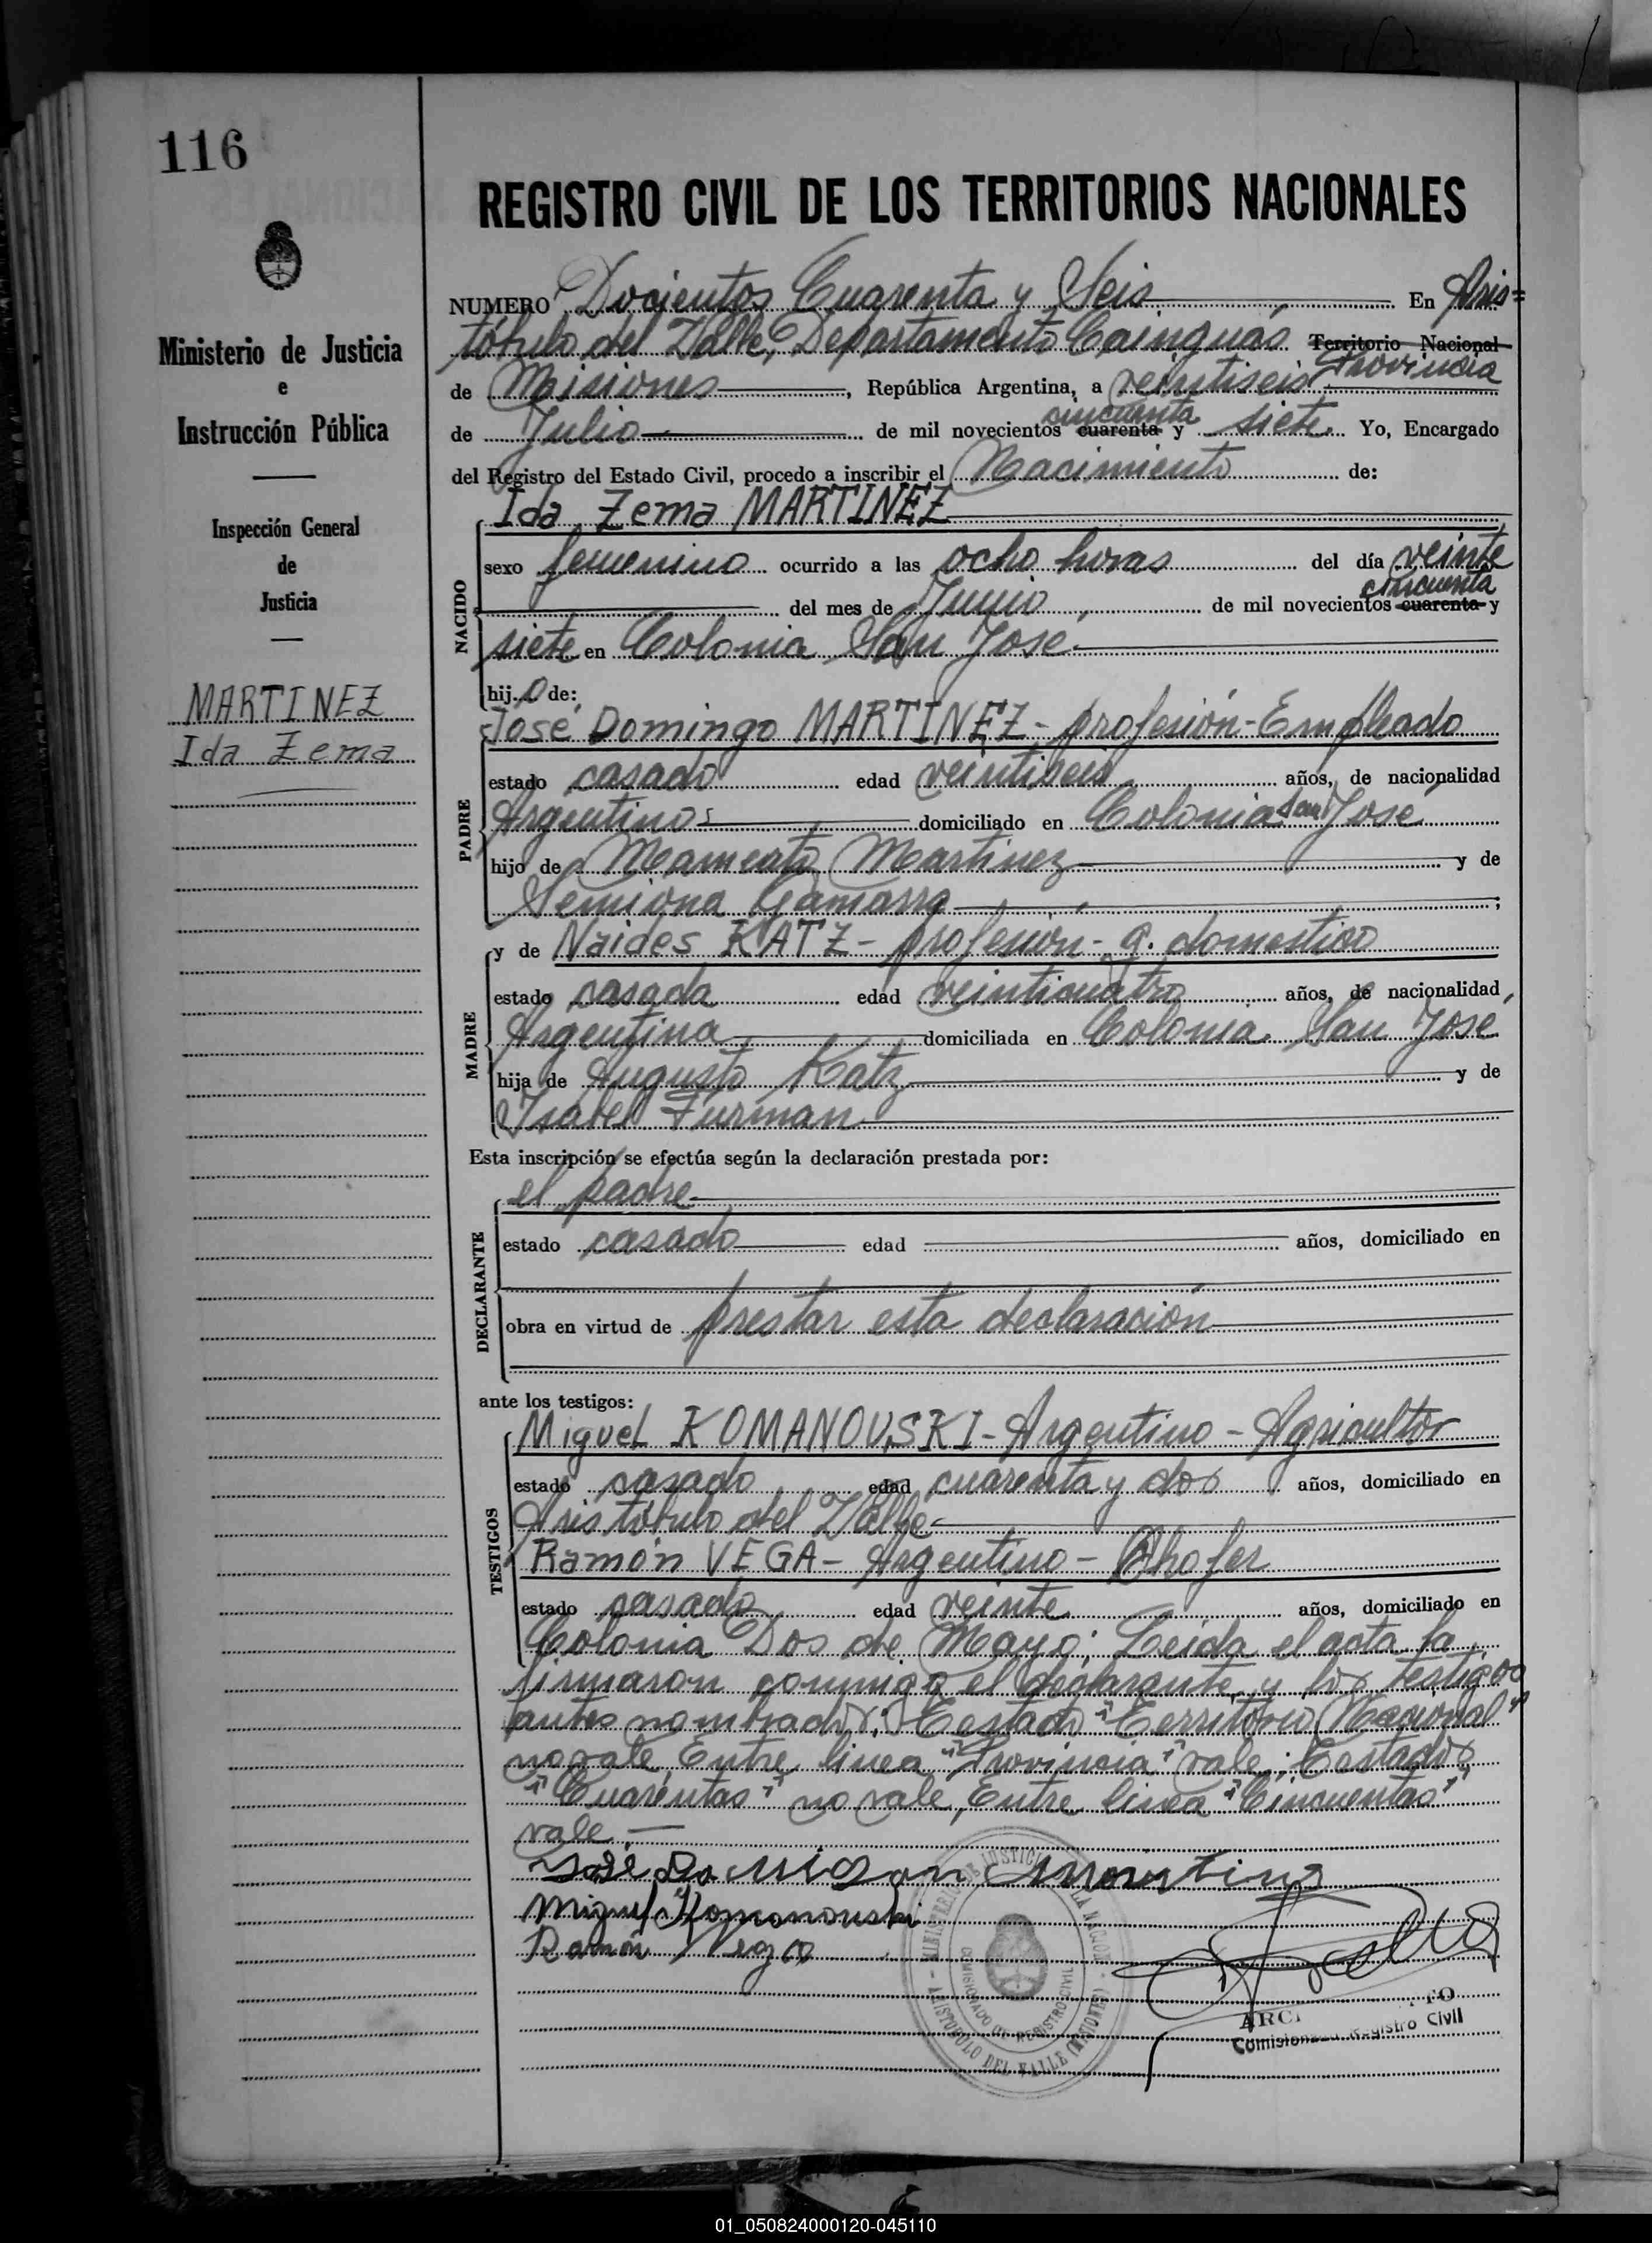 116
REGISTRO CIVIL DE LOS TERRITORIOS NACIONALES
Ministerio de Justicia
e
Instrucción Pública
Inspección General
de
Justicia
MARTINEZ
Ida Zema
NUMERO Docientos Cuarenta y Seis En Aris=
tóbulo del Valle, Departamento Cainguás Territorio Nacional
Provincia
de Misiones, República Argentina, a veintiseis
cincuenta
de Julio de mil novecientos cuarenta y siete. Yo, Encargado
del Registro del Estado Civil, procedo a inscribir el Nacimiento de:
NACIDO
Ida Zema MARTINEZ
sexo femenino ocurrido a las ocho horas del día veinte
cincuenta
del mes de Junio de mil novecientos cuarenta y
siete en Colonia San José.
hija de:
PADRE
José Domingo MARTINEZ - profesión - Empleado
estado casado edad veintiseis años, de nacionalidad
Argentino domiciliado en Colonia San José
hijo de Mamerto Martinez y de
Gamarra;
MADRE
y de Naides KATZ - profesión - q. domestico
estado casada edad veinticuatro años, de nacionalidad
Argentina domiciliada en Colonia San José
hija de Augusto Katz y de
Isabel Furman
Esta inscripción se efectúa según la declaración prestada por:
DECLARANTE
el padre
estado casado edad años, domiciliado en
obra en virtud de prestar esta declaración
ante los testigos:
TESTIGOS
Miguel KOMANOVSKI - Argentino - Agricultor
estado casado edad cuarenta y dos años, domiciliado en
Aristóbulo del Valle
Ramón VEGA - Argentino - Chofer
estado casado edad veinte años, domiciliado en
Colonia Dos de Mayo; Leida el acta la
firmaron conmigo el declarante y los testigos
antes nombrados: Testado "Territorio Nacional"
no vale, Entre linea "Provincia" vale; Testados
"Cuarentas" no vale, Entre linea "Cincuentas"
vale.
José Martinez
Miguel Komanouski
Ramón Vega
MINISTERIO DE JUSTICIA DE LA NACION
COMISIONADO DE REGISTRO CIVIL
ARISTOBULO DEL VALLE (MISIONES)
Comisionado Registro Civil
01_050824000120-045110